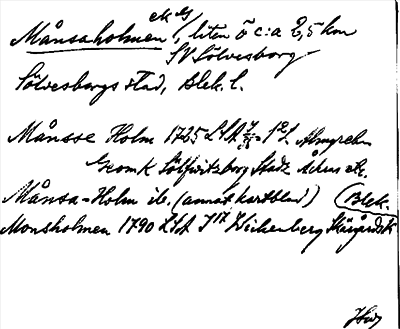 Månsaholmen, liten ö c:a 2,5 km
SV Sölvesborg
Sölvesborgs stad, Blek. l.
Månsse Holm 1725 LSA Almgrehn
Geom K Sölfwitzborg Stadz Åkrar etc.
Månsa-Holm ib. (annat kartblad) (Blek.
Monsholmen 1790 LSA Wickenberg Skärgårdsk